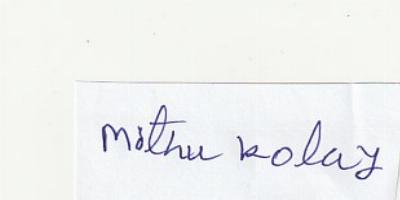 Mithu kolay